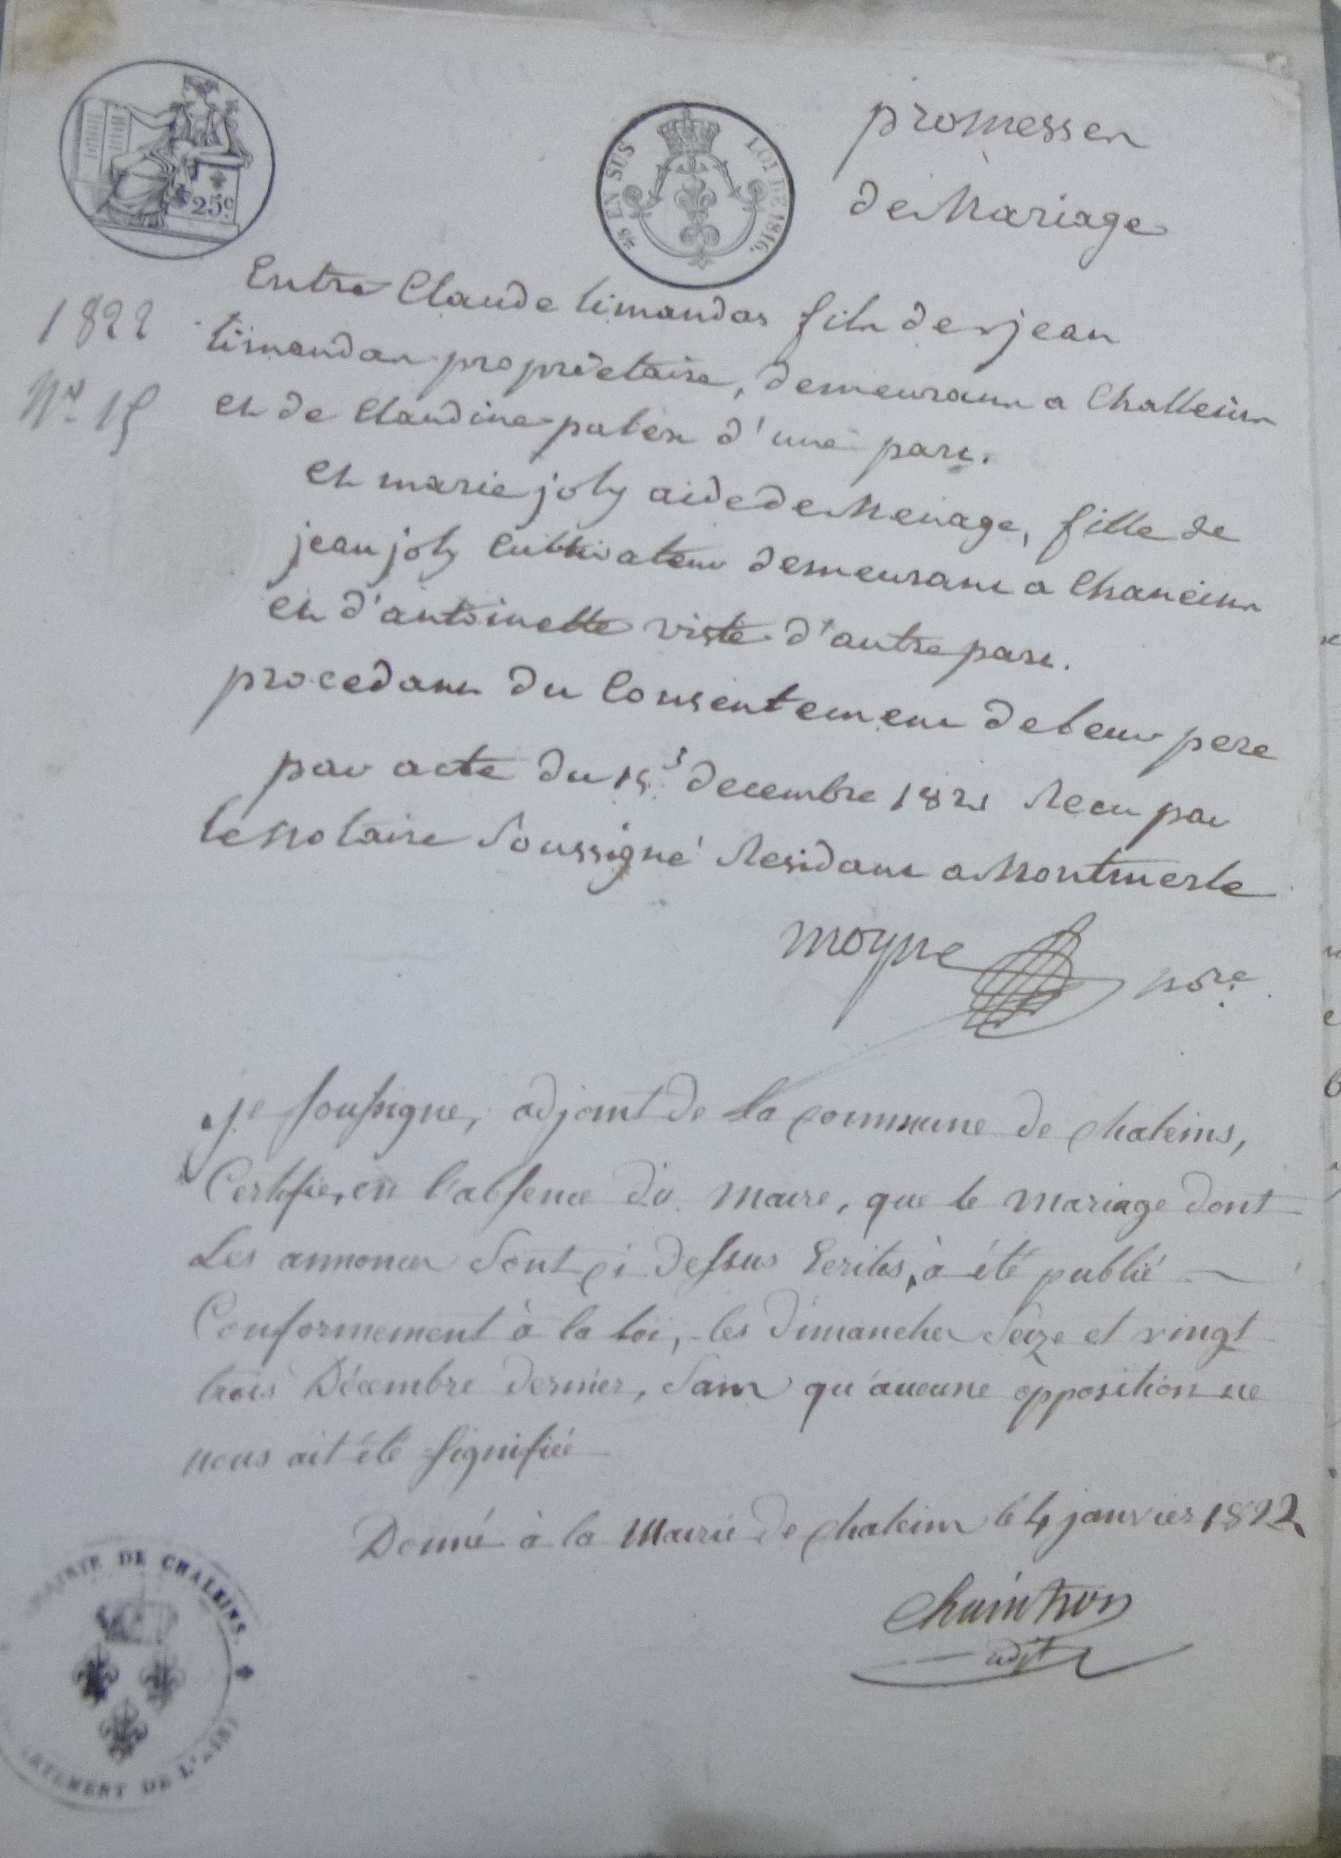 25c
25 EN SUS
LOI DE 1816.
promesses
de Mariage
1822
No. 15
Entre Claude limandas fils de jean
limandas propriétaire, demeurant a Challeins
et de Claudine d'une part.
et marie joly aide de Menage, fille de
jean joly Cultivateur demeurant a Chaneins
et d'antoinette viste d'autre part.
procedant du Consentement de leur pere
par acte du 15 decembre 1821 Recu par
le Notaire Soussigné Residant a Montmerle
moyne nore.
Je soussigne, adjoint de la commune de chaleins,
Certifie, en l'absence du maire, que le mariage dont
Les annonces sont ci dessus Ecrites, à été publié
Conformement à la loi, les dimanches Seize et vingt
trois Décembre dernier, sans qu'aucune opposition ne
nous ait été signifiée
Donné à la Mairie de chaleins le 4 janvier 1822
Chaintron
adjt
MAIRIE DE CHALEINS.
DEPARTEMENT DE L'AIN